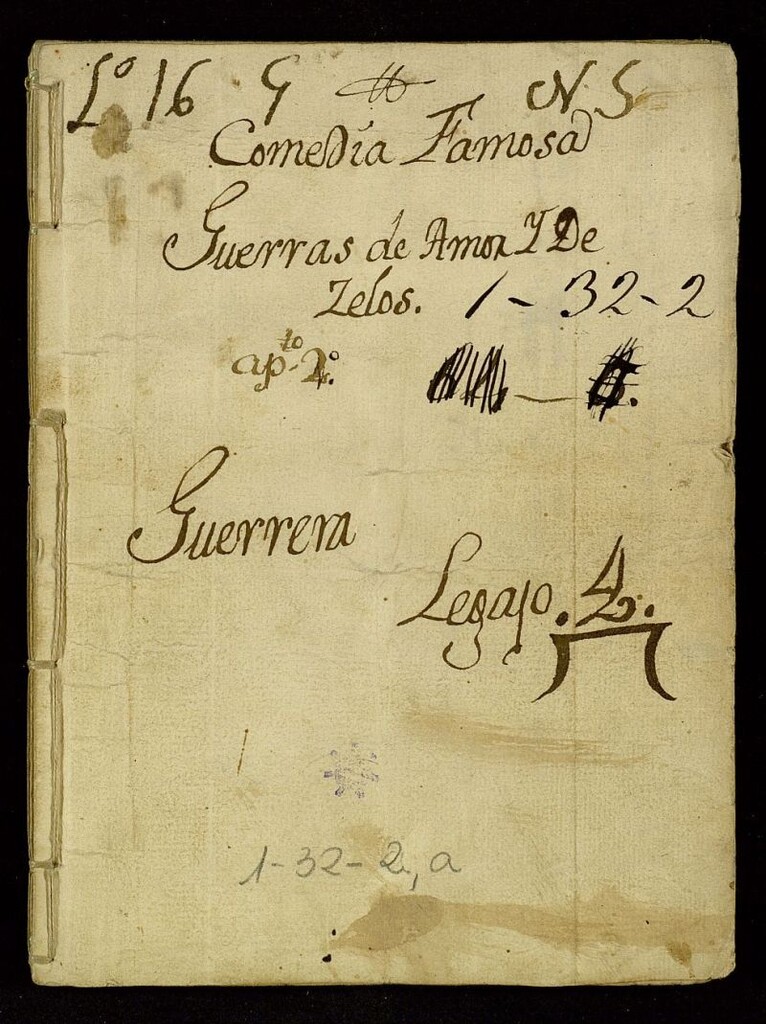 Lº 16 G N. 5
Comedia Famosa
Guerras de Amor Y De
Zelos. 1-32-2
apto. 2º.
Guerrera
Legajo. 4.
1-32-2, a